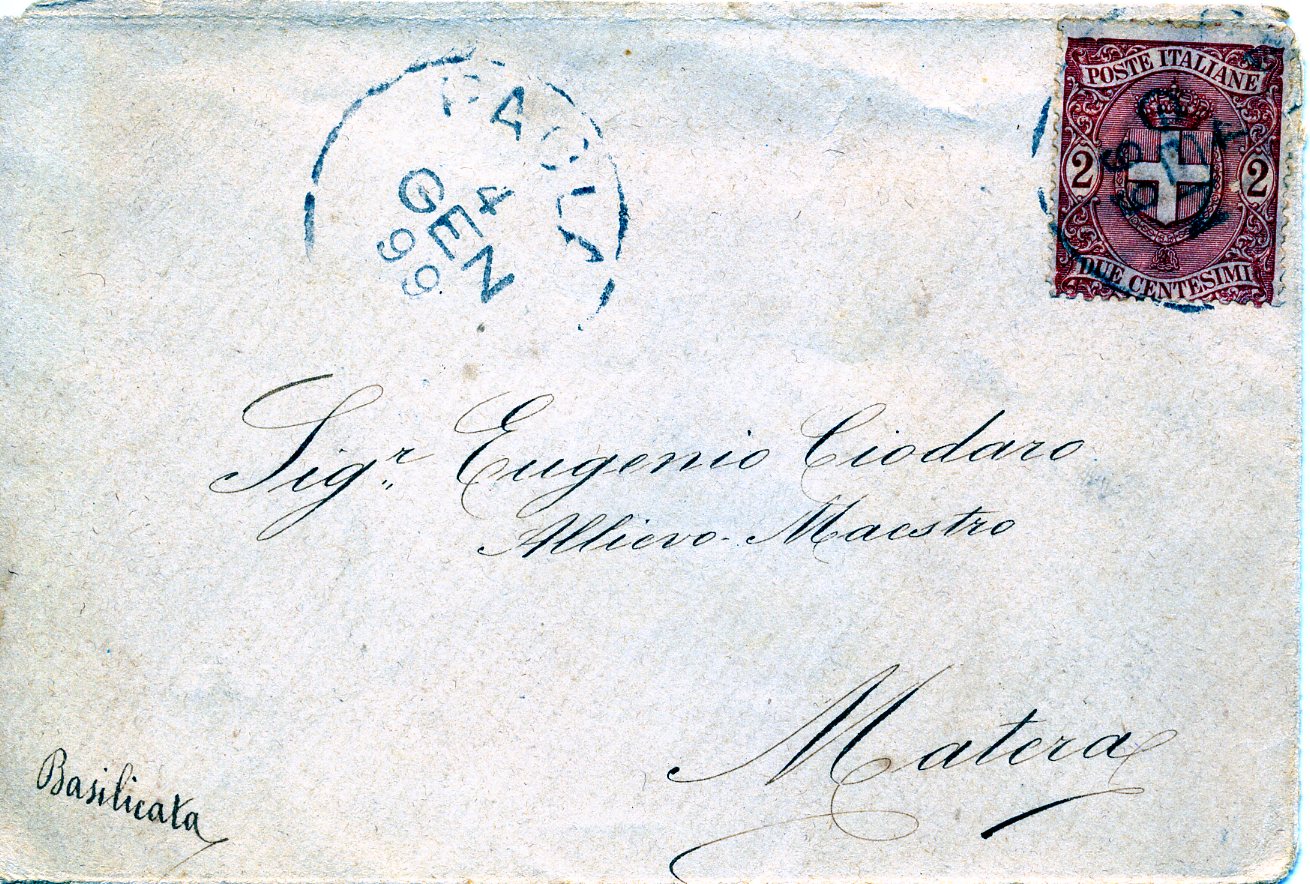 PAOLA
4
GEN
99
POSTE ITALIANE
2 2
DUE CENTESIMI
Sigr. Eugenio Ciodaro
Allievo-Maestro
Matera
Basilicata